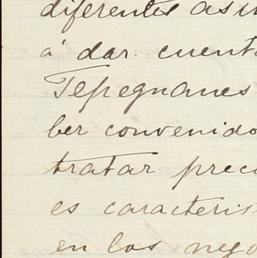 diferentes asun
á dar cuenta
Tepeguanes
ber convenido
tratar preci
es caracteris
en los nego